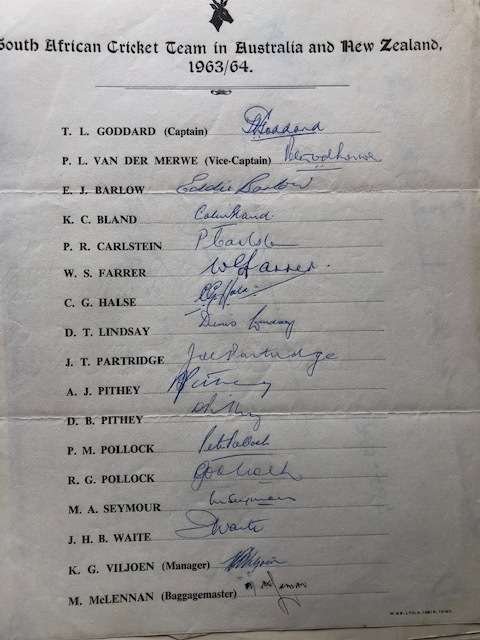 South African Cricket Team in Australia and New Zealand,
1963/64.
T. L. GODDARD (Captain) TLGoddard
P. L. VAN DER MERWE (Vice-Captain)
E. J. BARLOW Eddie Barlow
K. C. BLAND Colin Bland
P. R. CARLSTEIN P Carlstein
W. S. FARRER WSFarrer.
C. G. HALSE CGHalse
D. T. LINDSAY Denis Lindsay
J. T. PARTRIDGE Joe Partridge
A. J. PITHEY AJPithey
D. B. PITHEY
P. M. POLLOCK Peter Pollock
R. G. POLLOCK
M. A. SEYMOUR MSeymour
J. H. B. WAITE JWaite
K. G. VILJOEN (Manager)
M. McLENNAN (Baggagemaster)